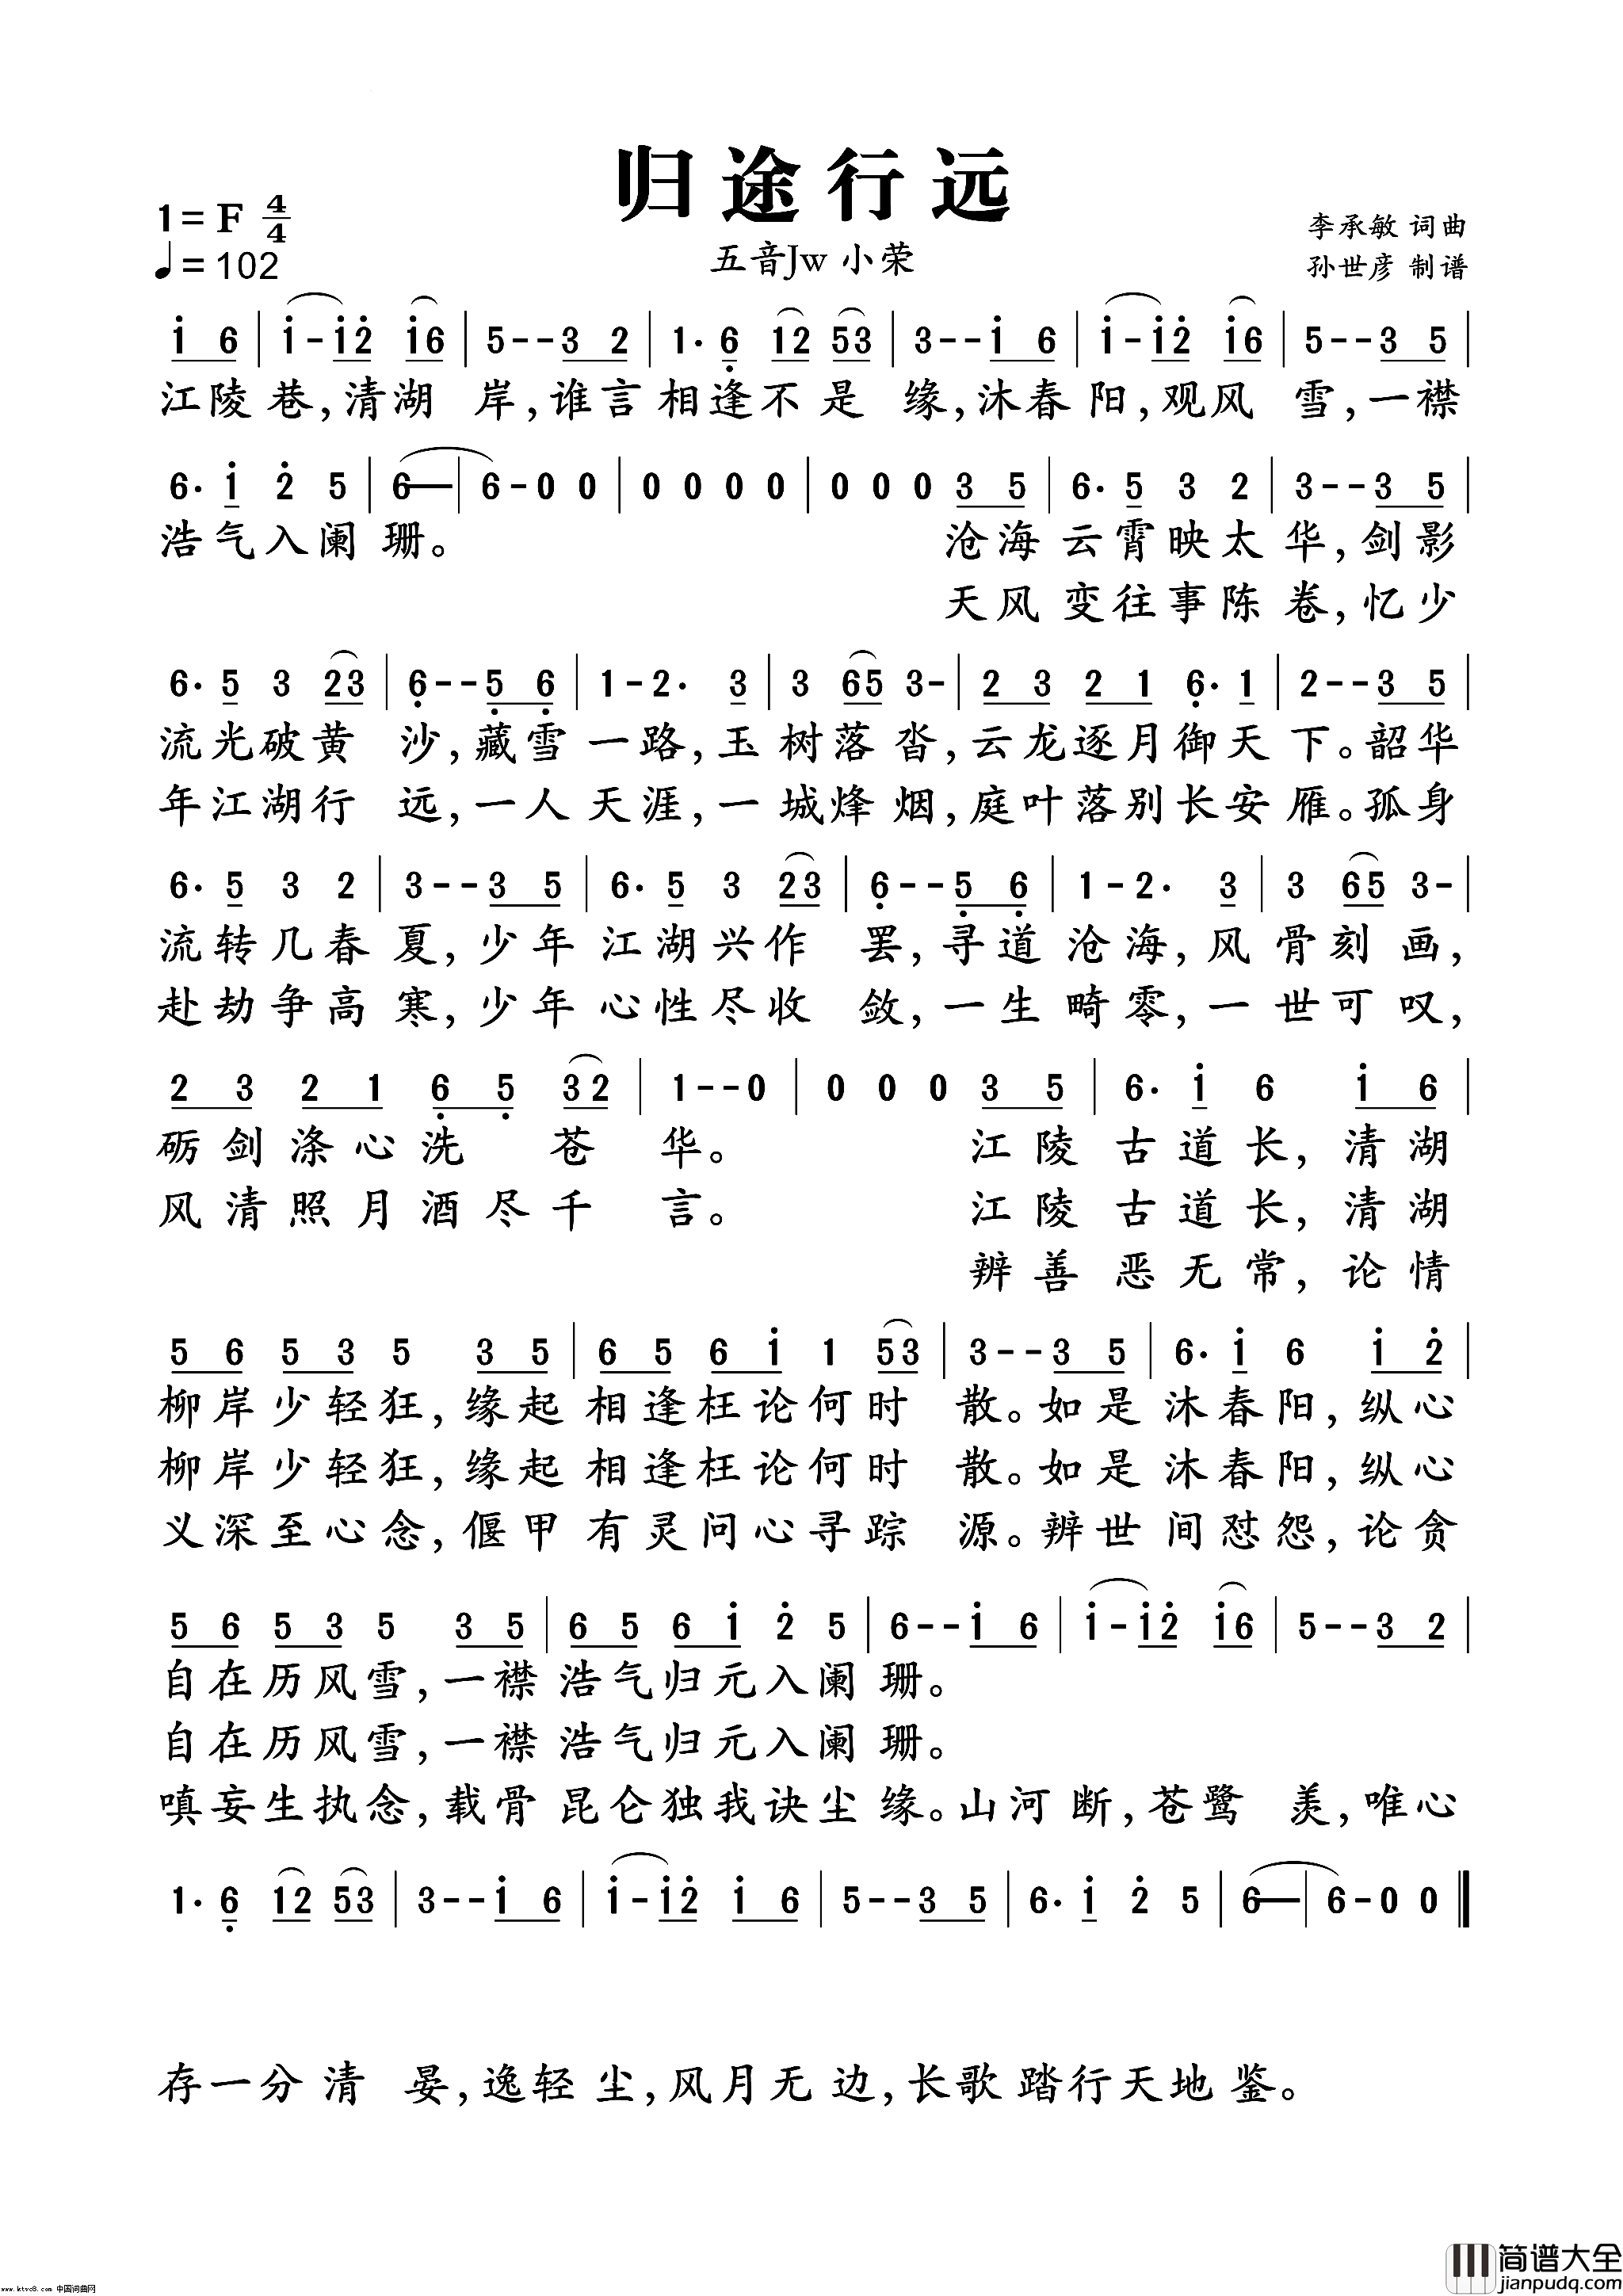 归途行远
1=F 4/4
李承敏 词曲
♩=102
五音Jw 小荣
孙世彦 制谱
i 6 | i - i 2̇ i 6 | 5 - - 3 2 | 1· 6̣ 1 2 5 3 | 3 - - i 6 | i - i 2̇ i 6 | 5 - - 3 5 |
江陵巷,清湖 岸,谁言相逢不是 缘,沐春阳,观风 雪,一襟
6· i 2̇ 5 | 6 — | 6 - 0 0 | 0 0 0 0 | 0 0 0 3 5 | 6· 5 3 2 | 3 - - 3 5 |
浩气入阑珊。 沧海云霄映太华,剑影
天风变往事陈卷,忆少
6· 5 3 2 3 | 6̣ - - 5̣ 6̣ | 1 - 2· 3 | 3 6 5 3 - | 2 3 2 1 6̣· 1 | 2 - - 3 5 |
流光破黄 沙,藏雪一路,玉树落沓,云龙逐月御天下。韶华
年江湖行 远,一人天涯,一城烽烟,庭叶落别长安雁。孤身
6· 5 3 2 | 3 - - 3 5 | 6· 5 3 2 3 | 6̣ - - 5̣ 6̣ | 1 - 2· 3 | 3 6 5 3 - |
流转几春夏,少年江湖兴作 罢,寻道沧海,风骨刻画,
赴劫争高寒,少年心性尽收 敛,一生畸零,一世可叹,
2 3 2 1 6̣ 5̣ 3 2 | 1 - - 0 | 0 0 0 3 5 | 6· i 6 i 6 |
砺剑涤心洗 苍 华。 江陵古道长,清湖
风清照月酒尽千 言。 江陵古道长,清湖
辨善恶无常,论情
5 6 5 3 5 3 5 | 6 5 6 i 1 5 3 | 3 - - 3 5 | 6· i 6 i 2̇ |
柳岸少轻狂,缘起相逢枉论何时 散。如是沐春阳,纵心
柳岸少轻狂,缘起相逢枉论何时 散。如是沐春阳,纵心
义深至心念,偃甲有灵问心寻踪 源。辨世间怼怨,论贪
5 6 5 3 5 3 5 | 6 5 6 i 2̇ 5 | 6 - - i 6 | i - i 2̇ i 6 | 5 - - 3 2 |
自在历风雪,一襟浩气归元入阑珊。
自在历风雪,一襟浩气归元入阑珊。
嗔妄生执念,载骨昆仑独我诀尘缘。山河断,苍鹭 羡,唯心
1· 6̣ 1 2 5 3 | 3 - - i 6 | i - i 2̇ i 6 | 5 - - 3 5 | 6· i 2̇ 5 | 6 — | 6 - 0 0 ‖
存一分清 晏,逸轻尘,风月无边,长歌踏行天地鉴。
www.ktvc8.com 中国词曲网
简谱大全
jianpudq.com